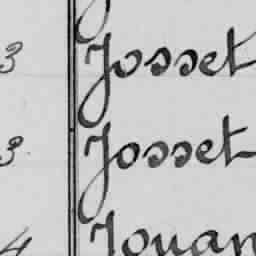 3 Josset
3 Josset
4 Jouan